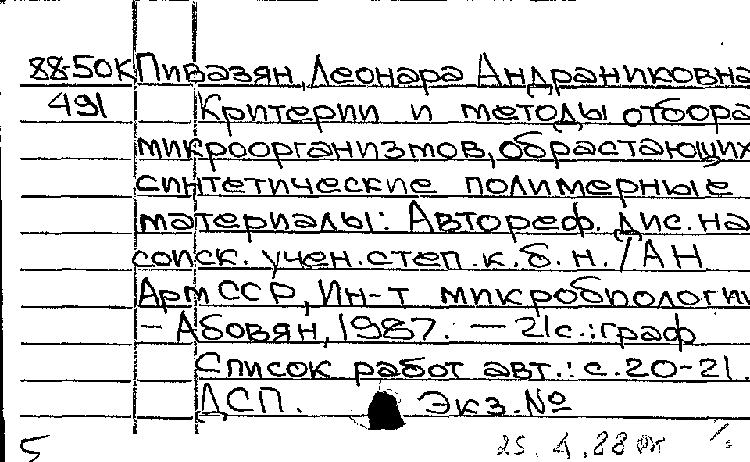 88-50К Пивазян, Леонара Андраниковна
491 Критерии и методы отбора
микроорганизмов, обрастающих
синтетические полимерные
материалы: Автореф. дис. на
соиск. учен. степ. к. б. н. / АН
АрмССР, Ин-т микробиологии
– Абовян, 1987. – 21с.: граф
Список работ авт.: с. 20-21.
ДСП. Экз. №
5 25. 4. 88